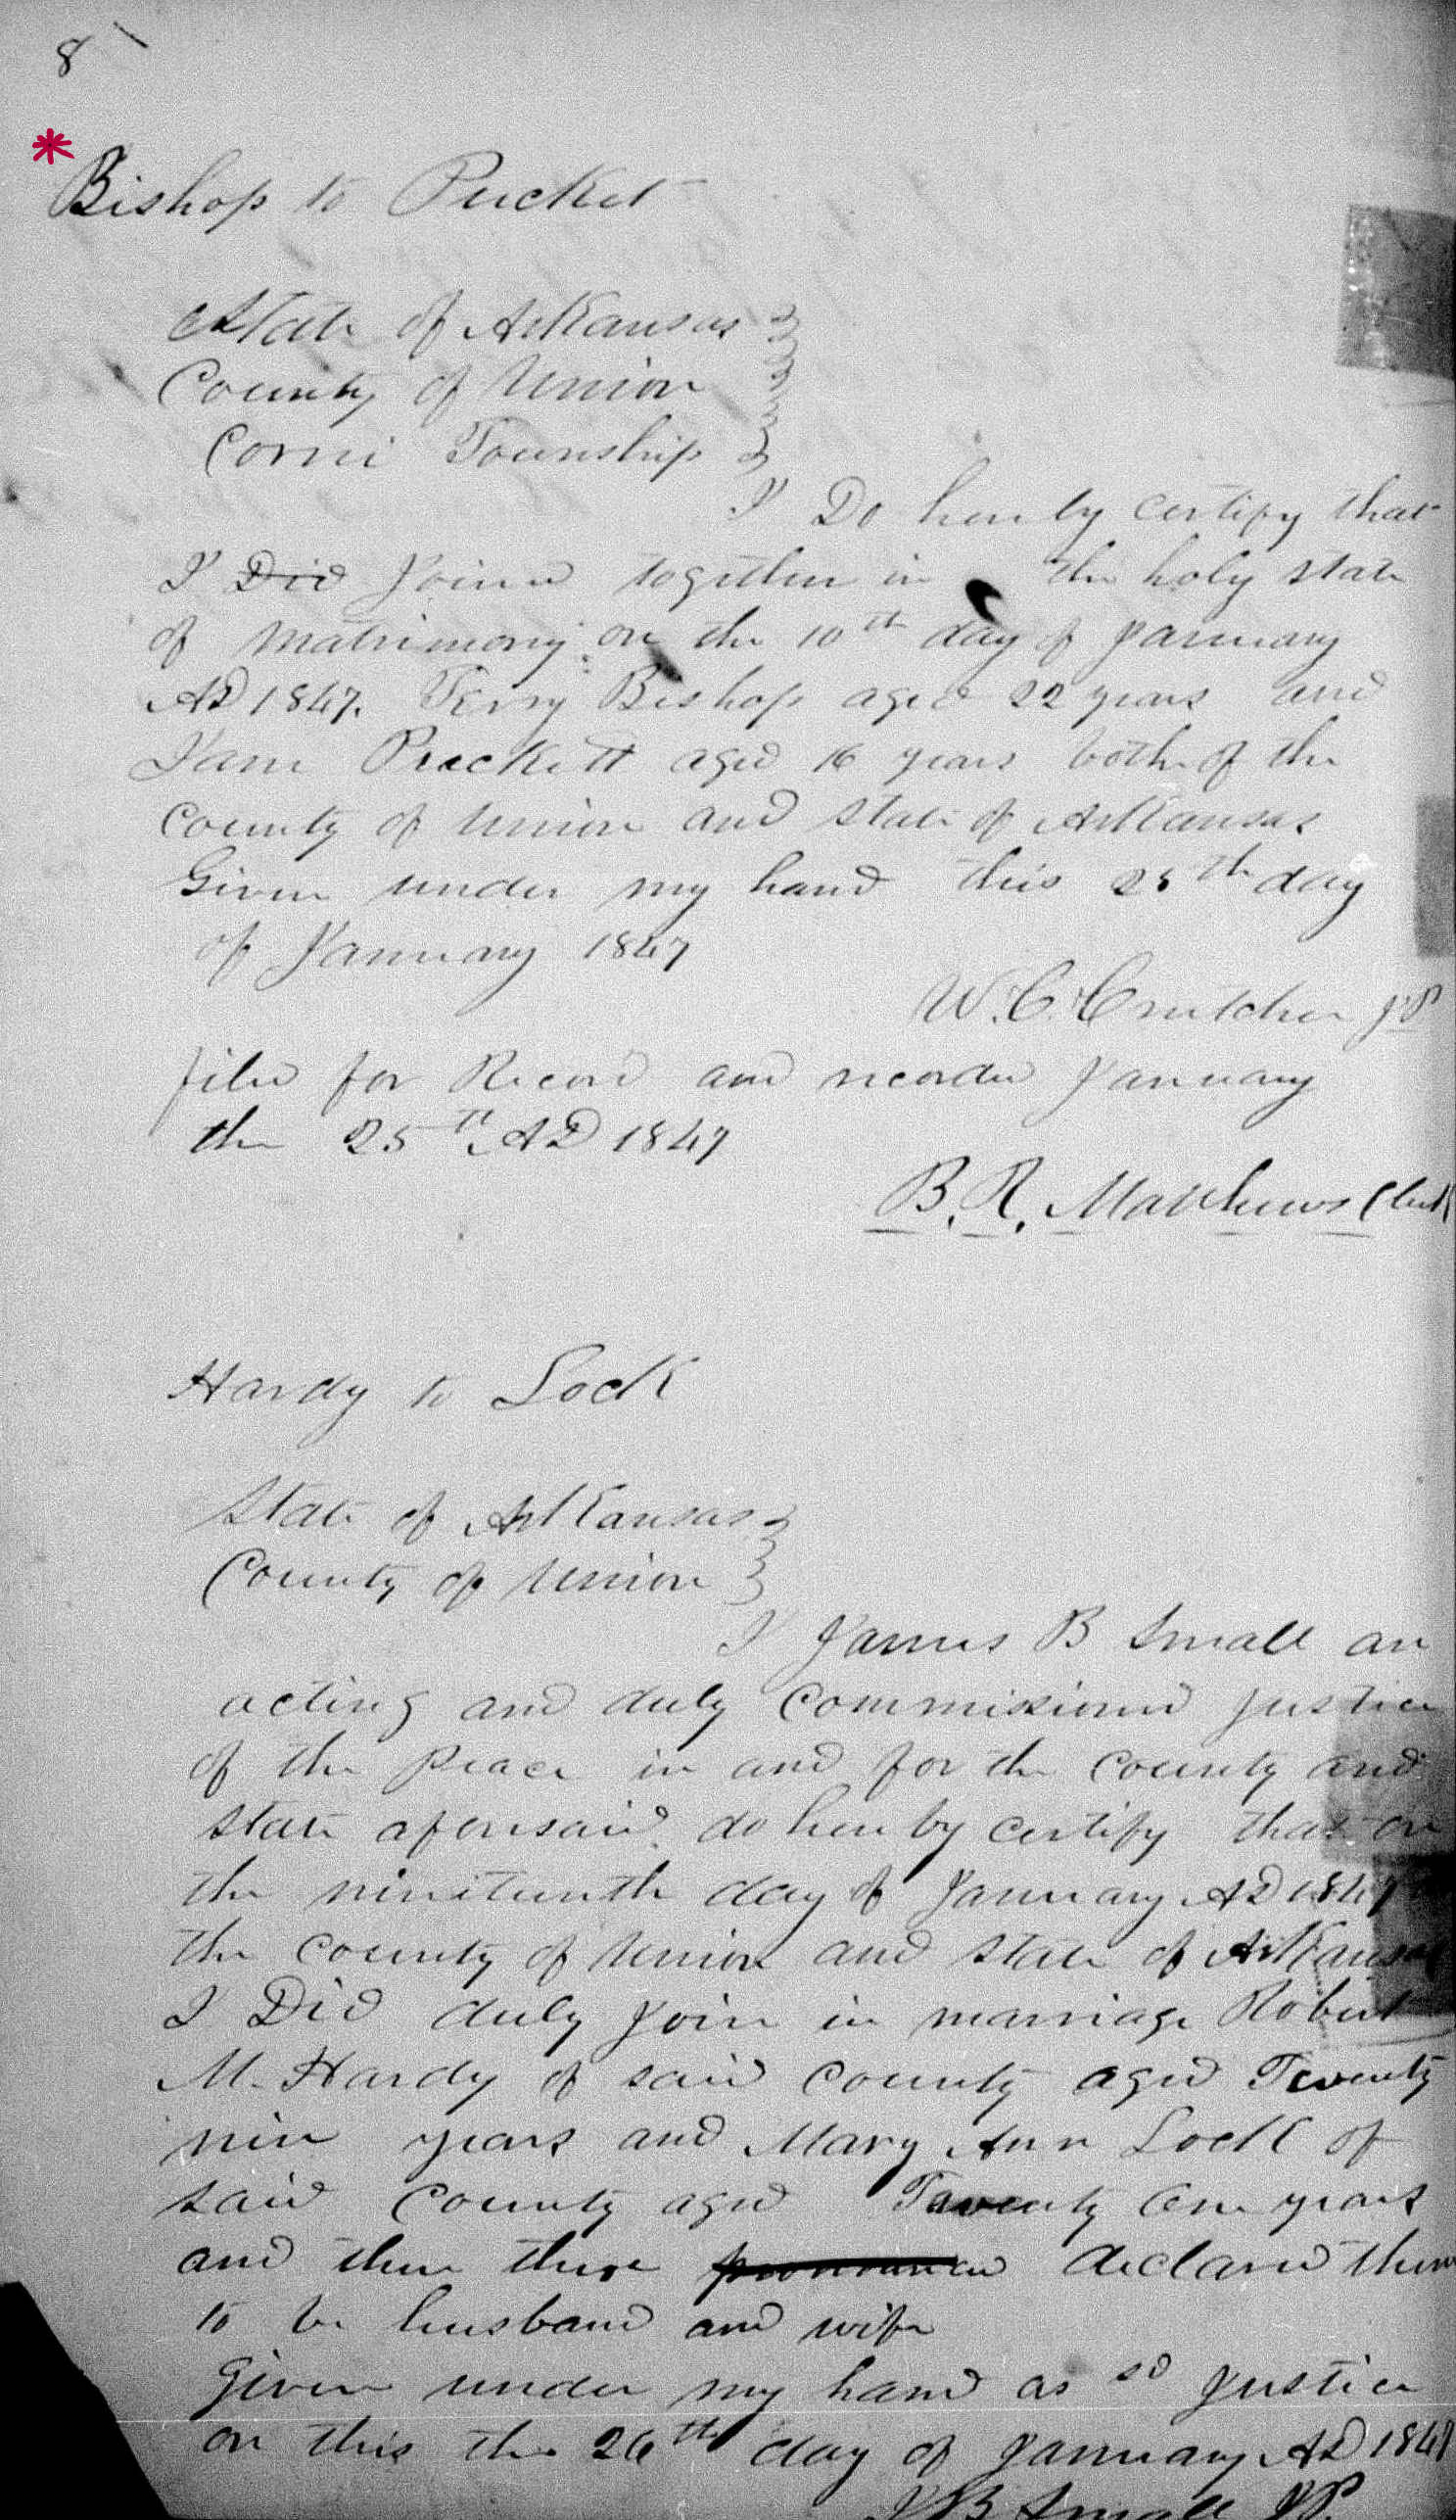 8
Bishop to Pucket
State of Arkansas
County of Union
Corni Township
I Do hereby certify that
I Did Joined together in the holy state
of matrimony on the 10th day of January
AD 1847. Terry Bishop aged 22 years and
Jane Puckett aged 16 years both of the
county of Union and state of Arkansas
Given under my hand this 25th day
of January 1847
W. C. Crutcher JP
filed for Record and recorded January
the 25th AD 1847
B. R. Matthews Clerk
Hardy to Lock
State of Arkansas
County of Union
I James B Small an
acting and duly commissioned Justice
of the Peace in and for the county and
state aforesaid do hereby certify that on
the nineteenth day of January AD 1847
the county of Union and state of Arkansas
I Did duly join in marriage Robert
M. Hardy of said county aged Twenty
nine years and Mary Ann Lock of
said county aged Twenty One years
and then there pronounced declared them
to be husband and wife
Given under my hand as sd Justice
on this the 26th day of January AD 1847
J B Small JP